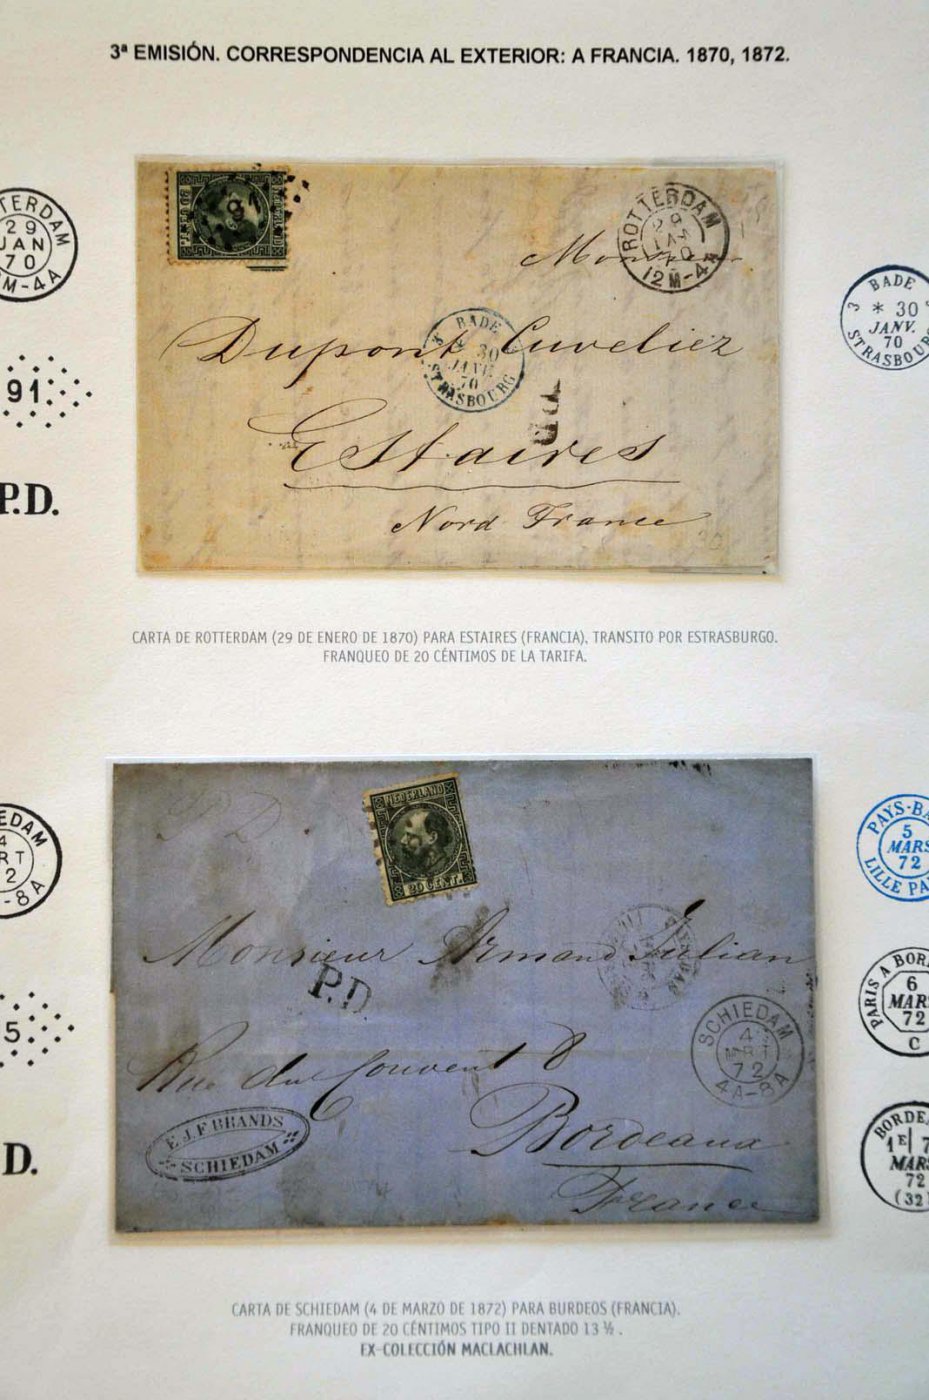 3ª EMISIÓN. CORRESPONDENCIA AL EXTERIOR: A FRANCIA. 1870, 1872.
TERDAM
29
JAN
70
M-4A
ROTTERDAM
29
JAN
70
12M-4A
Monsieur
3 BADE
* 30
JANV.
70
STRASBOU
3 BADE
30
JANV.
70
STRASBOURG
Dupont Cuveliez
91
P.D.
Estaires
Nord France
P.D.
CARTA DE ROTTERDAM (29 DE ENERO DE 1870) PARA ESTAIRES (FRANCIA), TRANSITO POR ESTRASBURGO.
FRANQUEO DE 20 CÉNTIMOS DE LA TARIFA.
NEDERLAND
20 CENT.
P D
EDAM
4
RT
2
-8A
PAYS-BA
5
MARS
72
LILLE PA
Monsieur Armand Julian
P.D
PARIS A BORD
6
MARS
72
C
SCHIEDAM
4
MRT
72
4A-8A
5
Rue du Couvent 8
E.J.F BRANDS
SCHIEDAM
Bordeaux
France
D.
BORDE
1E 7
MARS
72
(32)
CARTA DE SCHIEDAM (4 DE MARZO DE 1872) PARA BURDEOS (FRANCIA).
FRANQUEO DE 20 CÉNTIMOS TIPO II DENTADO 13 ½ .
EX-COLECCIÓN MACLACHLAN.